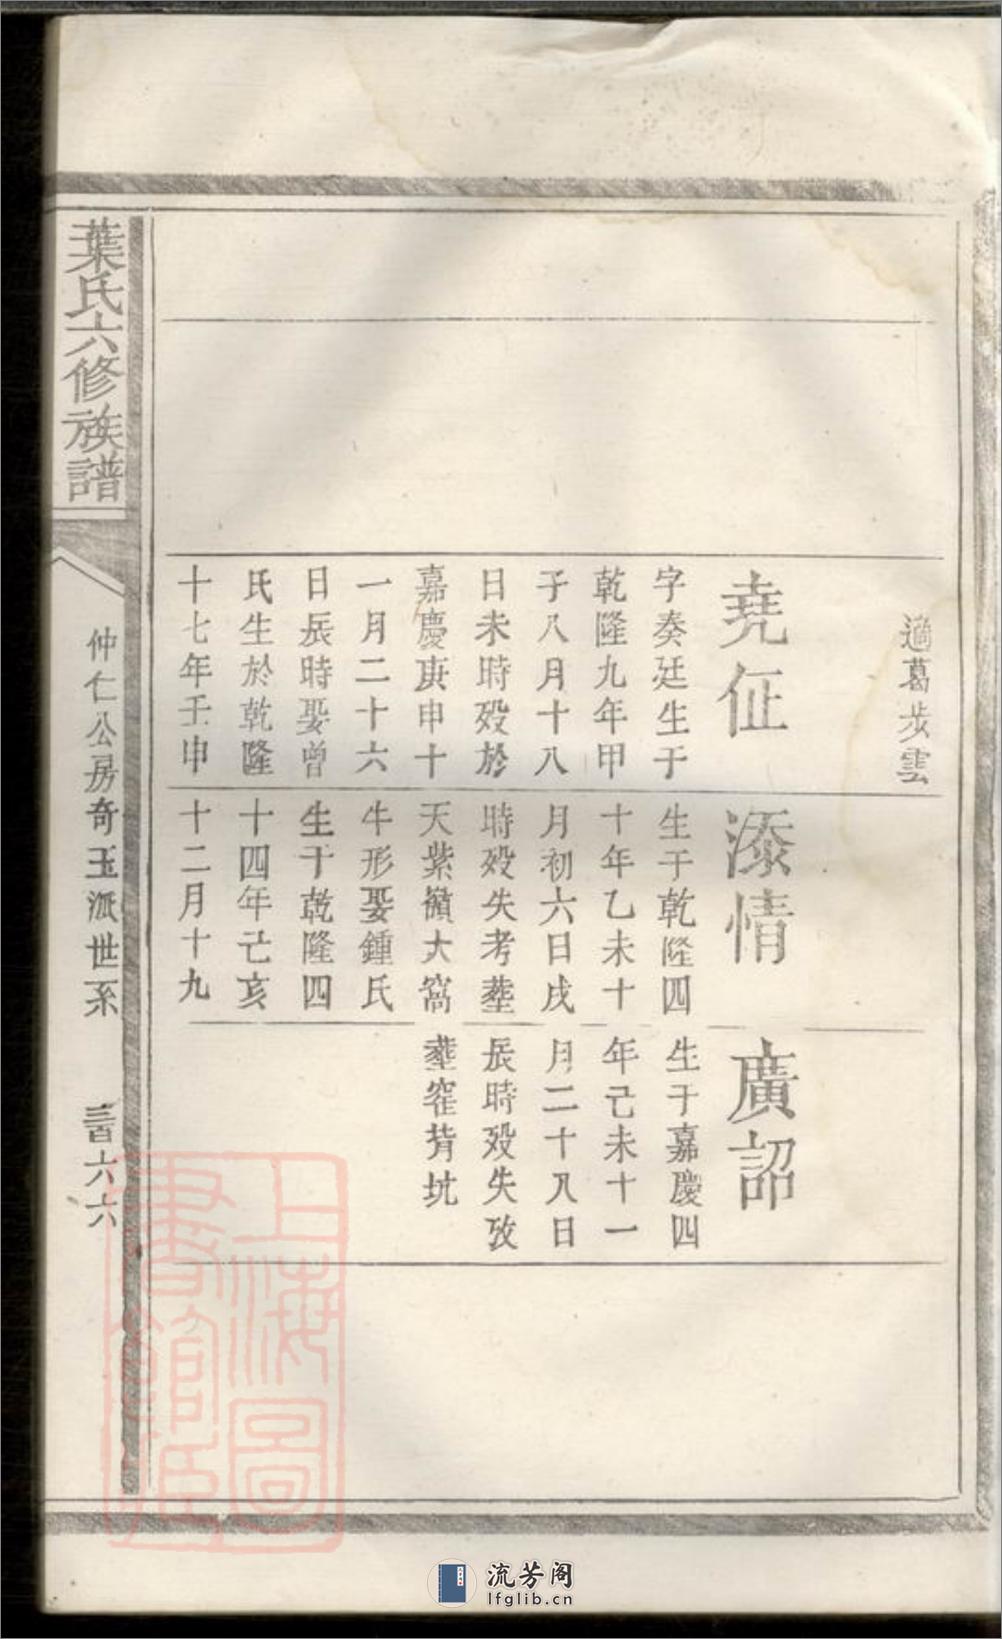 適葛步雲
堯佂
字奏廷生于
乾隆九年甲
子八月十八
日未時殁於
嘉慶庚申十
一月二十六
日辰時娶曾
氏生於乾隆
十七年壬申
添情
生于乾隆四
十年乙未十
月初六日戌
時殁失考塟
天紫嶺大窩
牛形娶鍾氏
生于乾隆四
十四年己亥
十二月十九
廣詔
生于嘉慶四
年己未十一
月二十八日
辰時殁失攷
塟窑背坑
葉氏六修族譜
仲仁公房奇玉派世系
三百六六
上海圖
書館藏
流芳阁
lfglib.cn